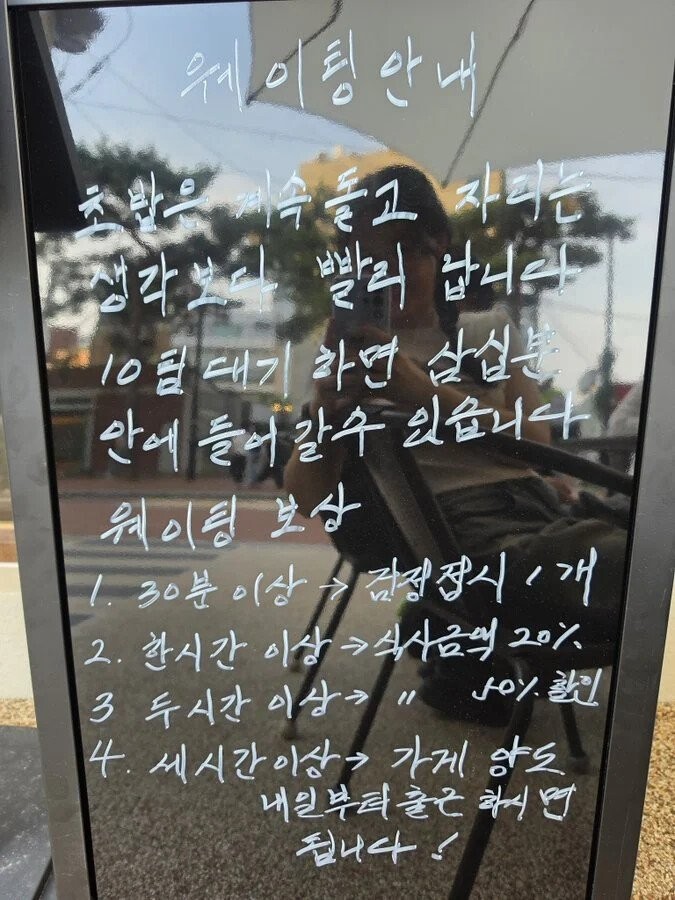 웨이팅 안내
초밥은 계속 돌고 자리는
생각보다 빨리 납니다
10팀 대기 하면 삼십분
안에 들어갈수 있습니다
웨이팅 보상
1. 30분 이상 → 감정접시 1개
2. 한시간 이상 → 식사금액 20%
3 두시간 이상 → " 50% 할인
4. 세시간이상 → 가게 양도
내일부터 출근 하시면
됩니다!